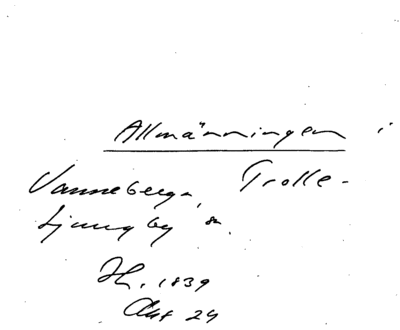 Allmänningen i
Vanneberga, Trolle-
Ljungby sn.
Jh. 1839
Akt 24